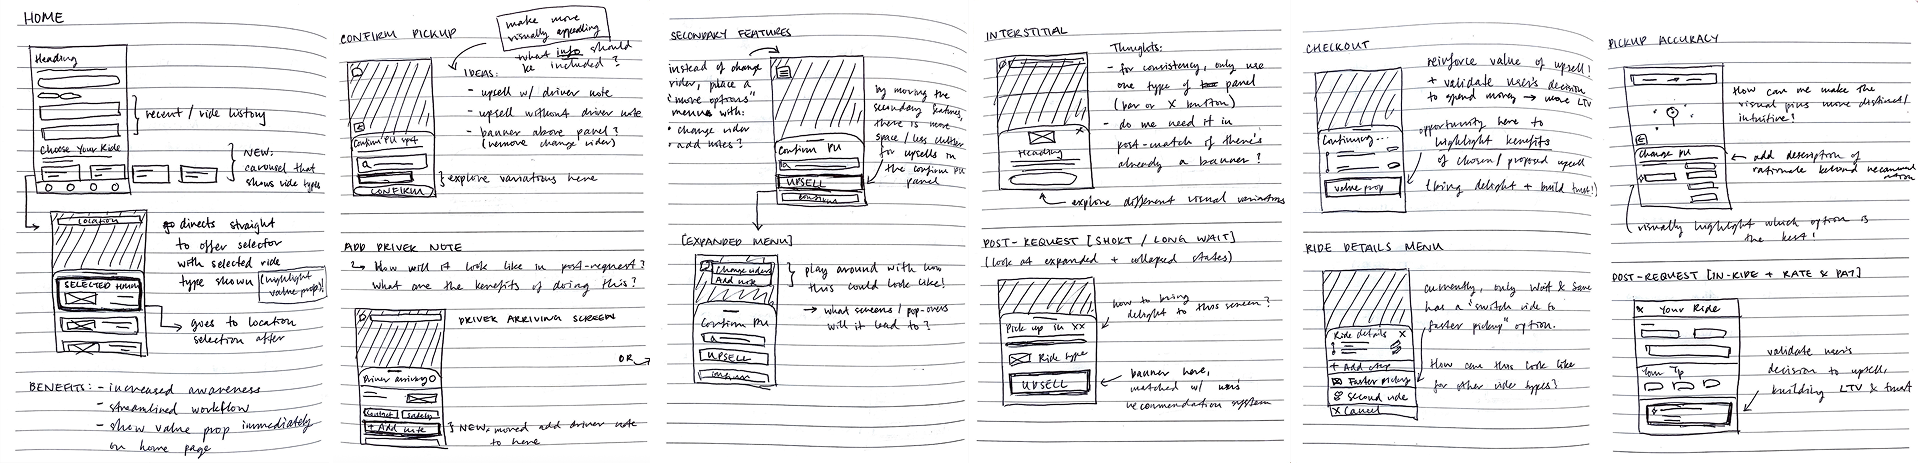 HOME
Heading
recent / ride history
Choose Your Ride
NEW:
carousel that
shows ride types
LOCATION
directs straight
to offer selector
with selected ride
type shown
(highlight
value prop)!
SELECTED
goes to location
selection after
BENEFITS: - increased awareness
- streamlined workflow
- show value prop immediately
on home page
CONFIRM PICKUP
make more
visually appealing
what info should
be included?
IDEAS:
- upsell w/ driver note
- upsell without driver note
- banner above panel?
(remove change rider)
Confirm PU spot
CONFIRM
explore variations here
ADD DRIVER NOTE
→ How will it look like in post-request?
what are the benefits of doing this?
DRIVER ARRIVING SCREEN
Driver arriving
Contact
Safety
+ Add note
NEW, moved add driver note
to here
OR →
SECONDARY FEATURES
instead of change
rider, place a
"more options"
menus with:
• change rider
• add notes?
Confirm PU
UPSELL
confirm
by moving the
secondary features,
there is more
space / less clutter
for upsells in
the confirm PU
panel
[EXPANDED MENU]
Change rider
Add note
Confirm PU
UPSELL
confirm
play around with how
this could look like!
→ what screens / pop-overs
will it lead to?
INTERSTITIAL
Thoughts:
- for consistency, only use
one type of panel
(bar or X button)
- do we need it in
post-match if there's
already a banner?
X
Heading
explore different visual variations
POST-REQUEST [SHORT / LONG WAIT]
(look at expanded + collapsed states)
Pick up in XX
Ride type
UPSELL
how to bring
delight to this screen?
banner here,
matched w/ user
recommendation system
CHECKOUT
reinforce value of upsell!
+ validate user's decision
to spend money → more LTV
Confirming...
value prop
opportunity here to
highlight benefits
of chosen / proposed upsell
(bring delight + build trust!)
RIDE DETAILS MENU
Ride details X
+ Add stop
Faster pickup
Second ride
X Cancel
currently, only Wait & Save
has a "switch ride to
faster pickup" option.
How can this look like
for other ride types?
PICKUP ACCURACY
How can we make the
visual pins more distinct/
intuitive!
Change PU
← add description of
rationale behind recommendation
visually highlight which option is
the best!
POST-REQUEST [IN-RIDE + RATE & PAY]
X Your Ride
Your Tip
validate user's
decision to upsell,
building LTV & trust